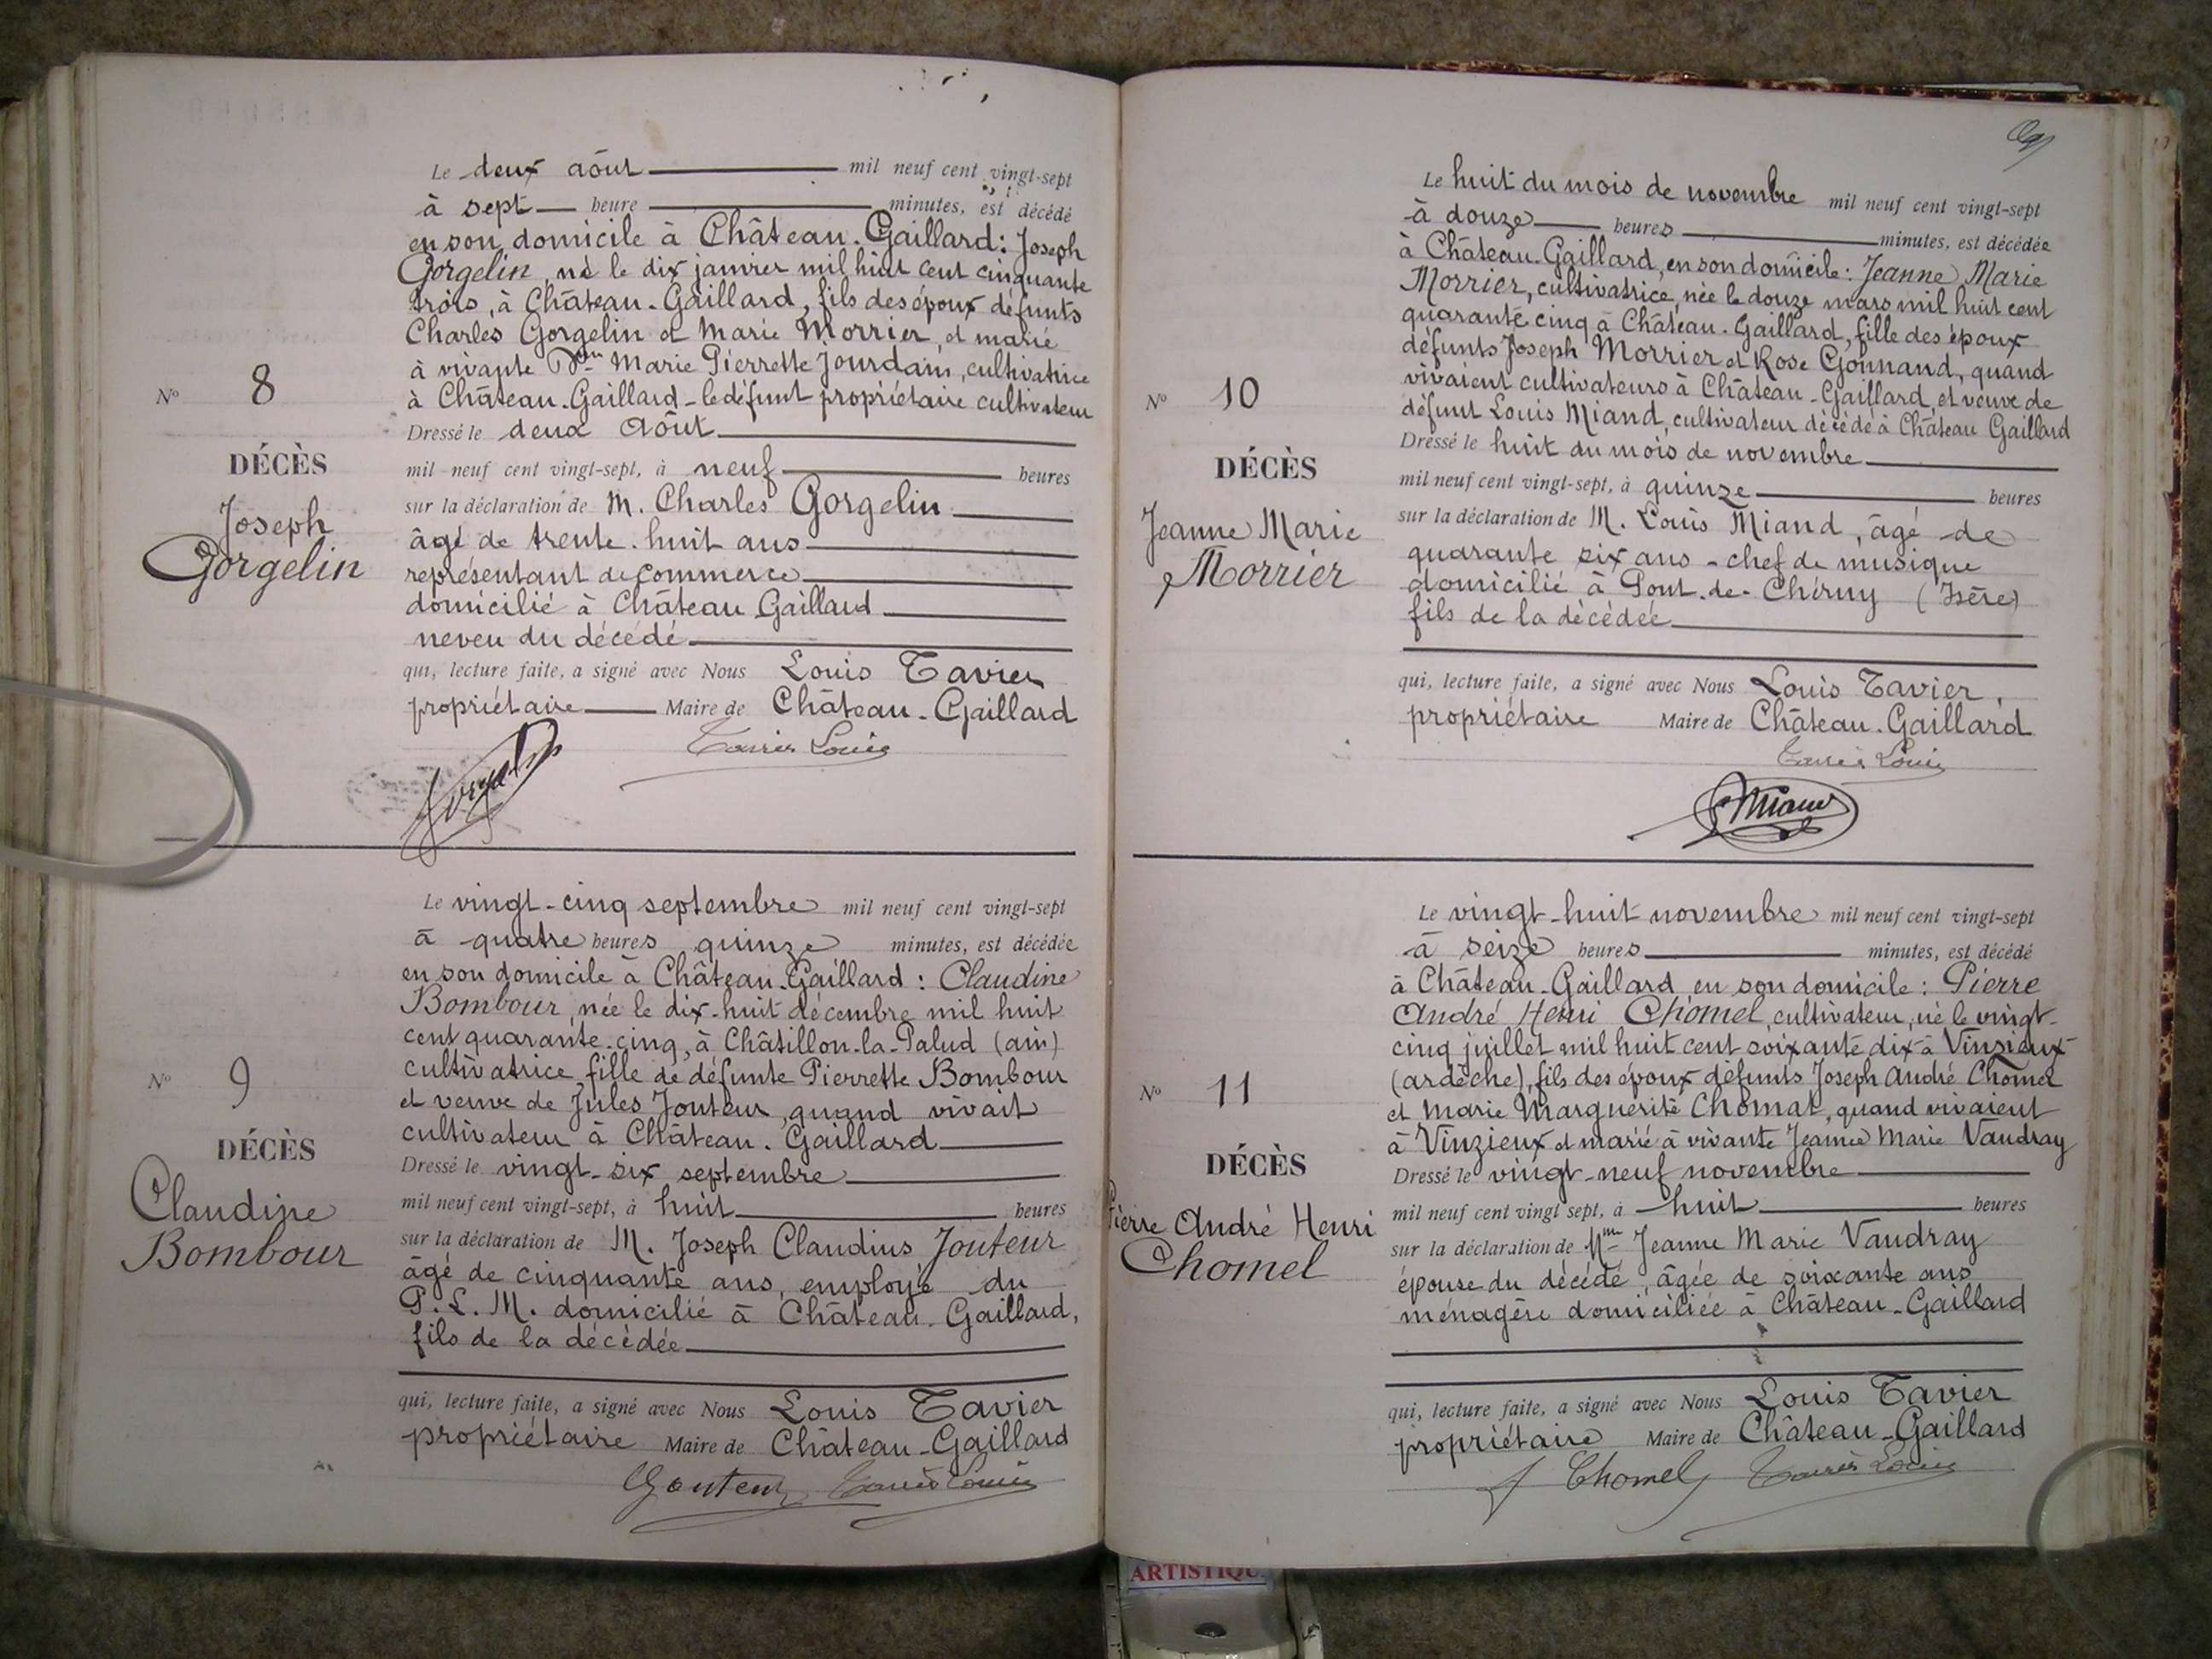 Le deux août mil neuf cent vingt-sept
à sept heure minutes, est décédé
en son domicile à Château-Gaillard : Joseph
Gorgelin, né le dix janvier mil huit cent cinquante
trois, à Château-Gaillard, fils des époux défunts
Charles Gorgelin et Marie Morrier, et marié
à vivante Dme Marie Pierrette Jourdain, cultivatrice
à Château-Gaillard - le défunt propriétaire cultivateur
Dressé le deux Août
mil neuf cent vingt-sept, à neuf heures
sur la déclaration de M. Charles Gorgelin
âgé de trente-huit ans
représentant de commerce
domicilié à Château Gaillard
neveu du décédé
qui, lecture faite, a signé avec Nous Louis Tavier
propriétaire Maire de Château-Gaillard
Tavier Louis
No 8
DÉCÈS
Joseph
Gorgelin
Le vingt-cinq septembre mil neuf cent vingt-sept
à quatre heures quinze minutes, est décédée
en son domicile à Château-Gaillard : Claudine
Bombour, née le dix-huit décembre mil huit
cent quarante-cinq, à Châtillon-la-Palud (ain)
cultivatrice, fille de défunte Pierrette Bombour
et veuve de Jules Jouteur, quand vivait
cultivateur à Château-Gaillard
Dressé le vingt-six septembre
mil neuf cent vingt-sept, à huit heures
sur la déclaration de M. Joseph Claudius Jouteur
âgé de cinquante ans, employé du
P.L.M. domicilié à Château-Gaillard,
fils de la décédée
qui, lecture faite, a signé avec Nous Louis Tavier
propriétaire Maire de Château-Gaillard
Jouteur Tavier Louis
No 9
DÉCÈS
Claudine
Bombour
Le huit du mois de novembre mil neuf cent vingt-sept
à douze heures minutes, est décédée
à Château-Gaillard, en son domicile : Jeanne Marie
Morrier, cultivatrice, née le douze mars mil huit cent
quarante cinq à Château-Gaillard, fille des époux
défunts Joseph Morrier et Rose Gonnand, quand
vivaient cultivateurs à Château-Gaillard, et veuve de
défunt Louis Miand, cultivateur décédé à Château Gaillard
Dressé le huit du mois de novembre
mil neuf cent vingt-sept, à quinze heures
sur la déclaration de M. Louis Miand, âgé de
quarante six ans - chef de musique
domicilié à Pont-de-Chéruy (Isère)
fils de la décédée
qui, lecture faite, a signé avec Nous Louis Tavier,
propriétaire Maire de Château-Gaillard
Tavier Louis
Miand
No 10
DÉCÈS
Jeanne Marie
Morrier
Le vingt-huit novembre mil neuf cent vingt-sept
à seize heures minutes, est décédé
à Château-Gaillard en son domicile : Pierre
André Henri Chomel, cultivateur, né le vingt-
cinq juillet mil huit cent soixante dix à Vinzieux
(ardèche), fils des époux défunts Joseph André Chomel
et Marie Marguerite Chomat, quand vivaient
à Vinzieux et marié à vivante Jeanne Marie Vaudray
Dressé le vingt-neuf novembre
mil neuf cent vingt sept, à huit heures
sur la déclaration de Mme Jeanne Marie Vaudray
épouse du décédé, âgée de soixante ans
ménagère domiciliée à Château-Gaillard
qui, lecture faite, a signé avec Nous Louis Tavier
propriétaire Maire de Château-Gaillard
Chomel Tavier Louis
No 11
DÉCÈS
Pierre André Henri
Chomel
ARTISTIQU